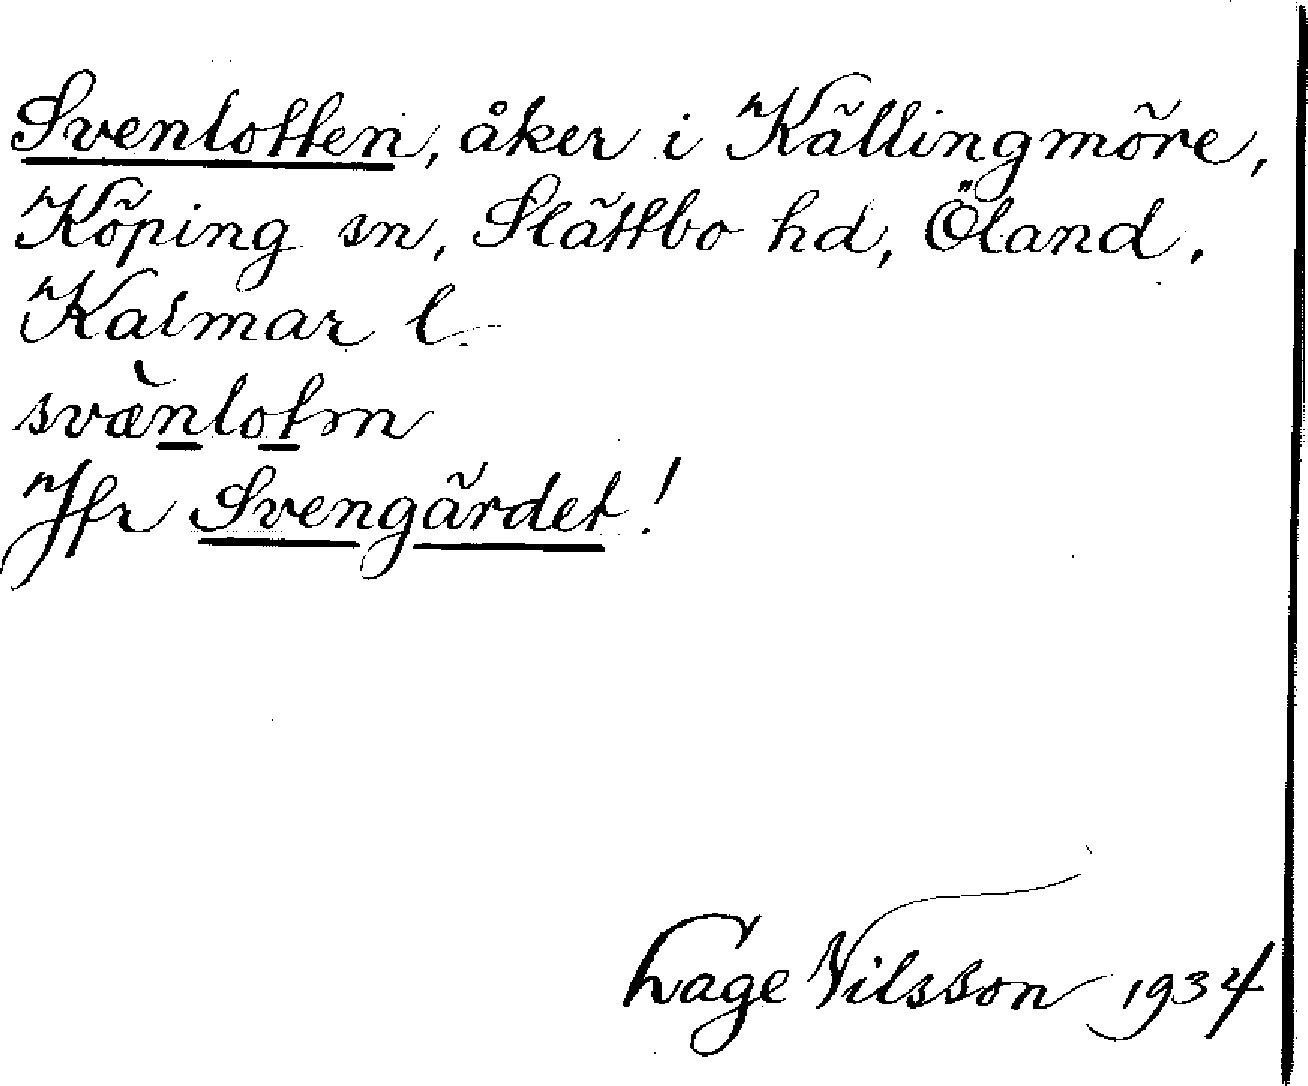 Svenlotten, åker i Källingmöre,
Köping sn, Slättbo hd, Öland,
Kalmar l.
svæ̀nlotn
Jfr Svengärdet!
Lage Nilsson 1934